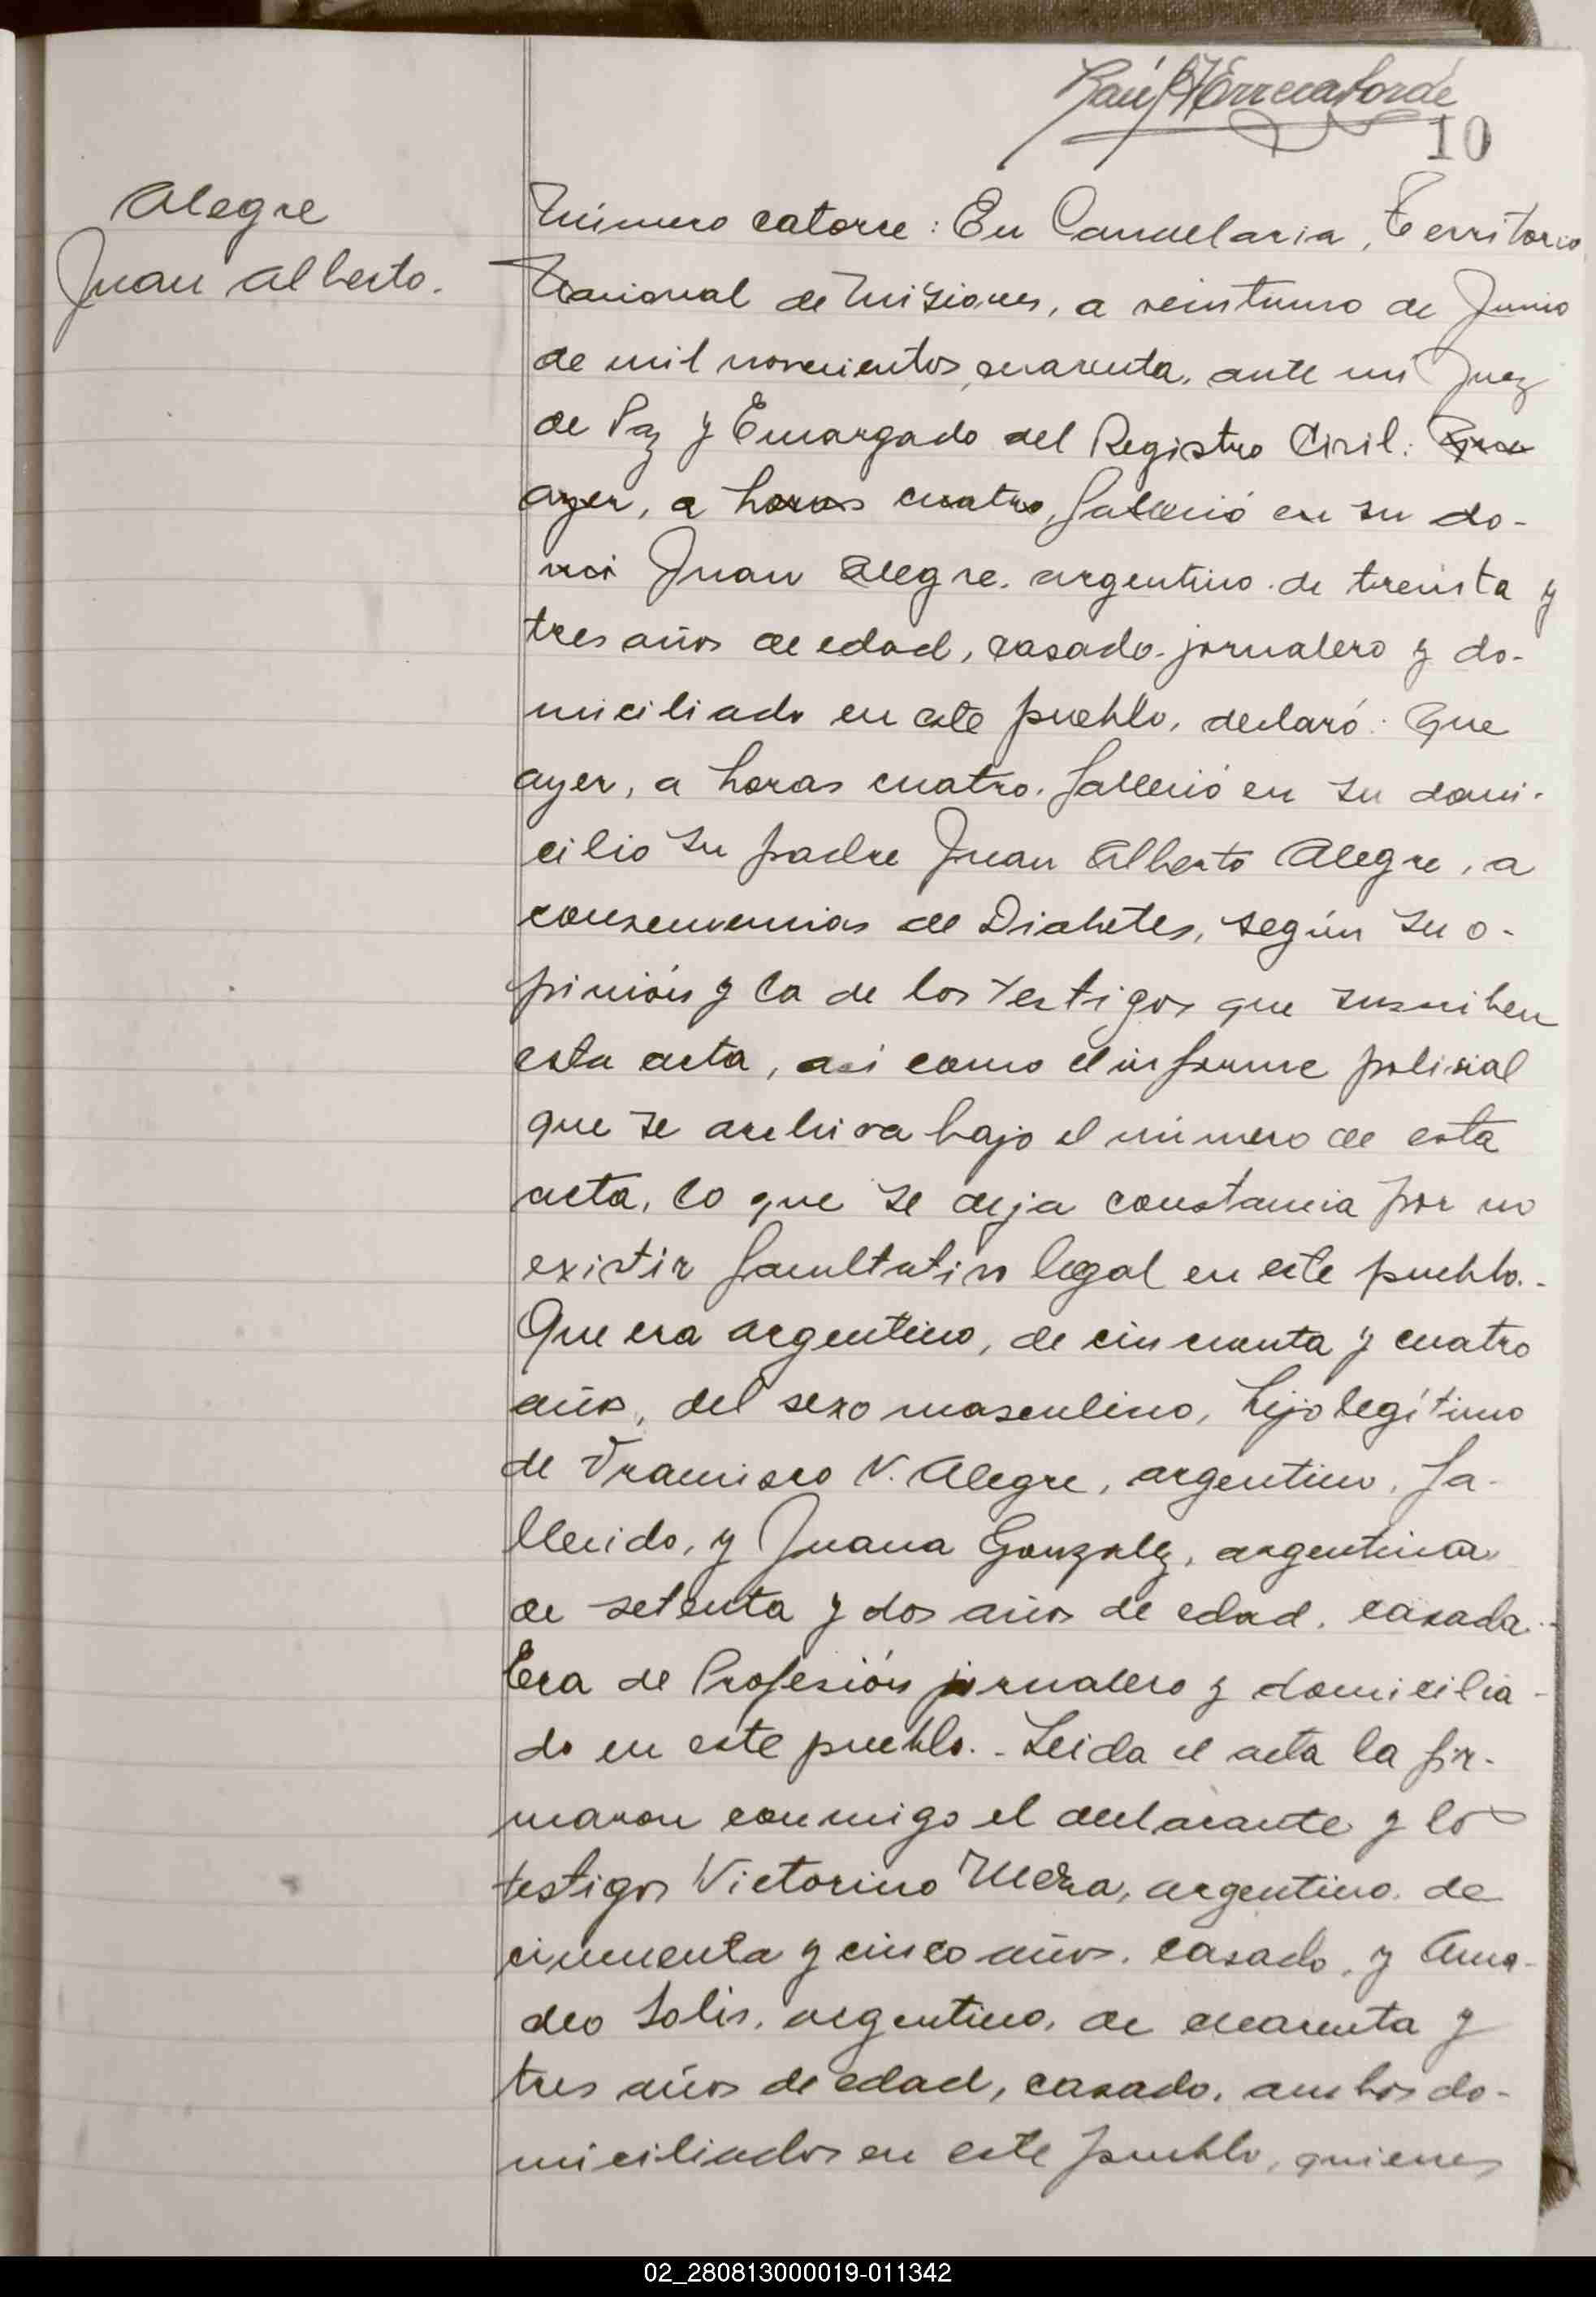 10
Alegre
Juan Alberto.
Número catorce: En Candelaria, Territorio
Nacional de Misiones, a veintiuno de Junio
de mil novecientos cuarenta, ante mi Juez
de Paz y Encargado del Registro Civil: Que
ayer, a horas cuatro, falleció en su do-
mi Juan Alegre. argentino. de treinta y
tres años de edad, casado. jornalero y do-
miciliado en este pueblo, declaró: Que
ayer, a horas cuatro. falleció en su domi-
cilio su padre Juan Alberto Alegre, a
consecuencias de Diabetes, según su o-
pinión y la de los testigos que suscriben
esta acta, asi como el informe policial
que se archiva bajo el número de esta
acta, lo que se deja constancia por no
existir facultativo legal en este pueblo.-
Que era argentino, de cincuenta y cuatro
años, del sexo masculino, hijo legítimo
de Francisco V. Alegre, argentino, fa-
llecido, y Juana Gonzalez, argentina
de setenta y dos años de edad, casada.-
Era de Profesión jornalero y domicilia-
do en este pueblo.- Leida el acta la fir-
maron conmigo el declarante y los
testigos Victorino Meza, argentino. de
cincuenta y cinco años. casado, y Ama-
deo Solis, argentino, de cuarenta y
tres años de edad, casado, ambos do-
miciliados en este pueblo, quienes
02_280813000019-011342